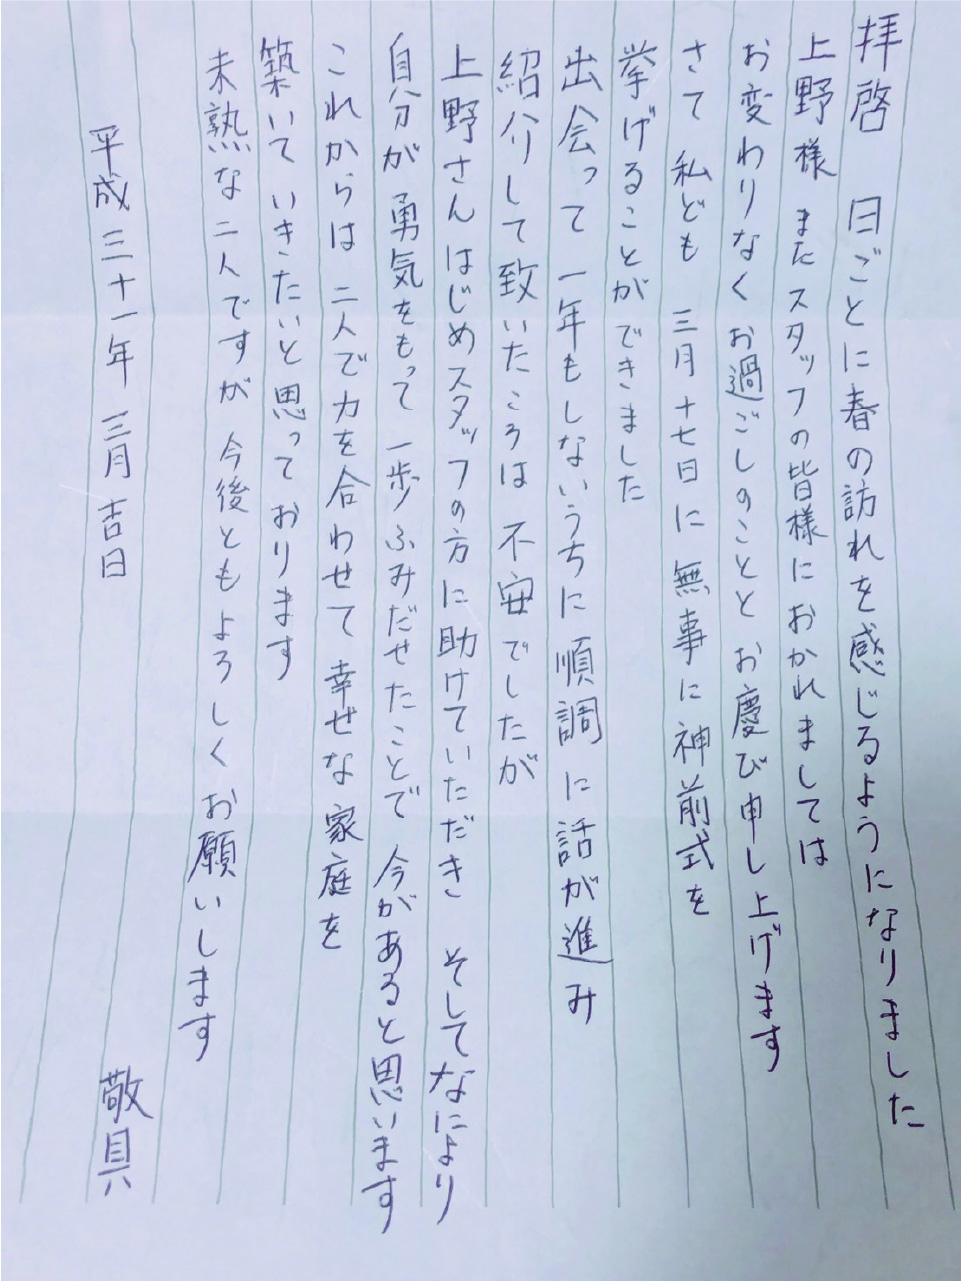 拝啓 日ごとに春の訪れを感じるようになりました
上野様 またスタッフの皆様におかれましては
お変わりなくお過ごしのこととお慶び申し上げます
さて 私ども 三月十七日に無事に神前式を
挙げることができました
出会って一年もしないうちに順調に話が進み
紹介して致いたころは不安でしたが
上野さんはじめスタッフの方に助けていただき そしてなにより
自分が勇気をもって一歩ふみだせたことで 今があると思います
これからは二人で力を合わせて幸せな家庭を
築いていきたいと思っております
未熟な二人ですが 今後ともよろしくお願いします
平成三十一年 三月吉日
敬具